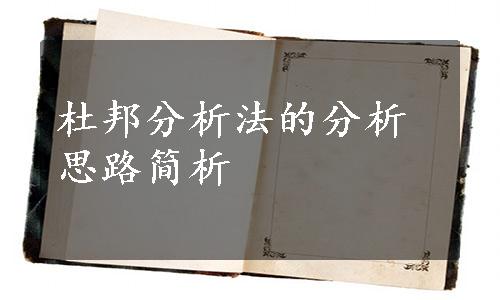 杜邦分析法的分析
思路简析